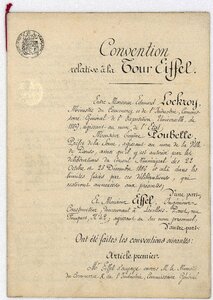 Convention
relative à la Tour Eiffel.
Entre Monsieur Edouard Lockroy,
Ministre du Commerce et de l'Industrie, Commissaire
Général de l'Exposition Universelle de
1889, agissant au nom de l'Etat,
Monsieur Eugène Poubelle,
Préfet de la Seine, agissant au nom de la Ville
de Paris ainsi qu'il y est autorisé par les
délibérations du Conseil Municipal des 22
Octobre et 2 Décembre 1886 et
limites fixées par ces délibérations qui
annexées aux présentes;
D'une part,
Et Monsieur Eiffel, Ingénieur
Constructeur demeurant à Levallois-Perret, rue
Fouquet N° 42, agissant en son nom personnel
D'autre part,
Ont été faites les conventions suivantes:
Article premier.
Mr Eiffel s'engage envers M. le Ministre
du Commerce & de l'Industrie, Commissaire Général